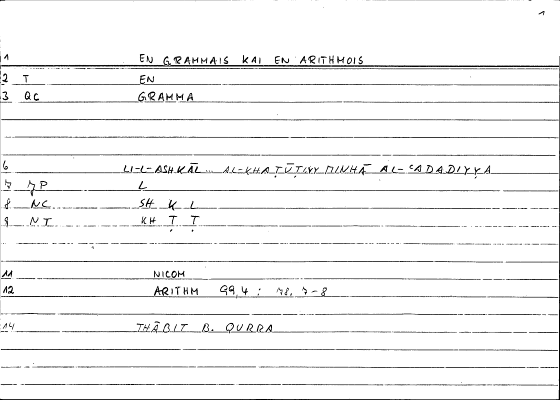 1
1 EN GRAMMAIS KAI EN ARITHMOIS
2 T EN
3 QC GRAMMA
6 LI-L-ASHKĀL... AL-KHAṬŪṬIYY MINHĀ AL-ʿADADIYYA
7 7P L
8 NC SH K L
9 NT KH Ṭ Ṭ
11 NICOM
12 ARITHM 99,4 : 78, 7-8
14 THĀBIT B. QURRA